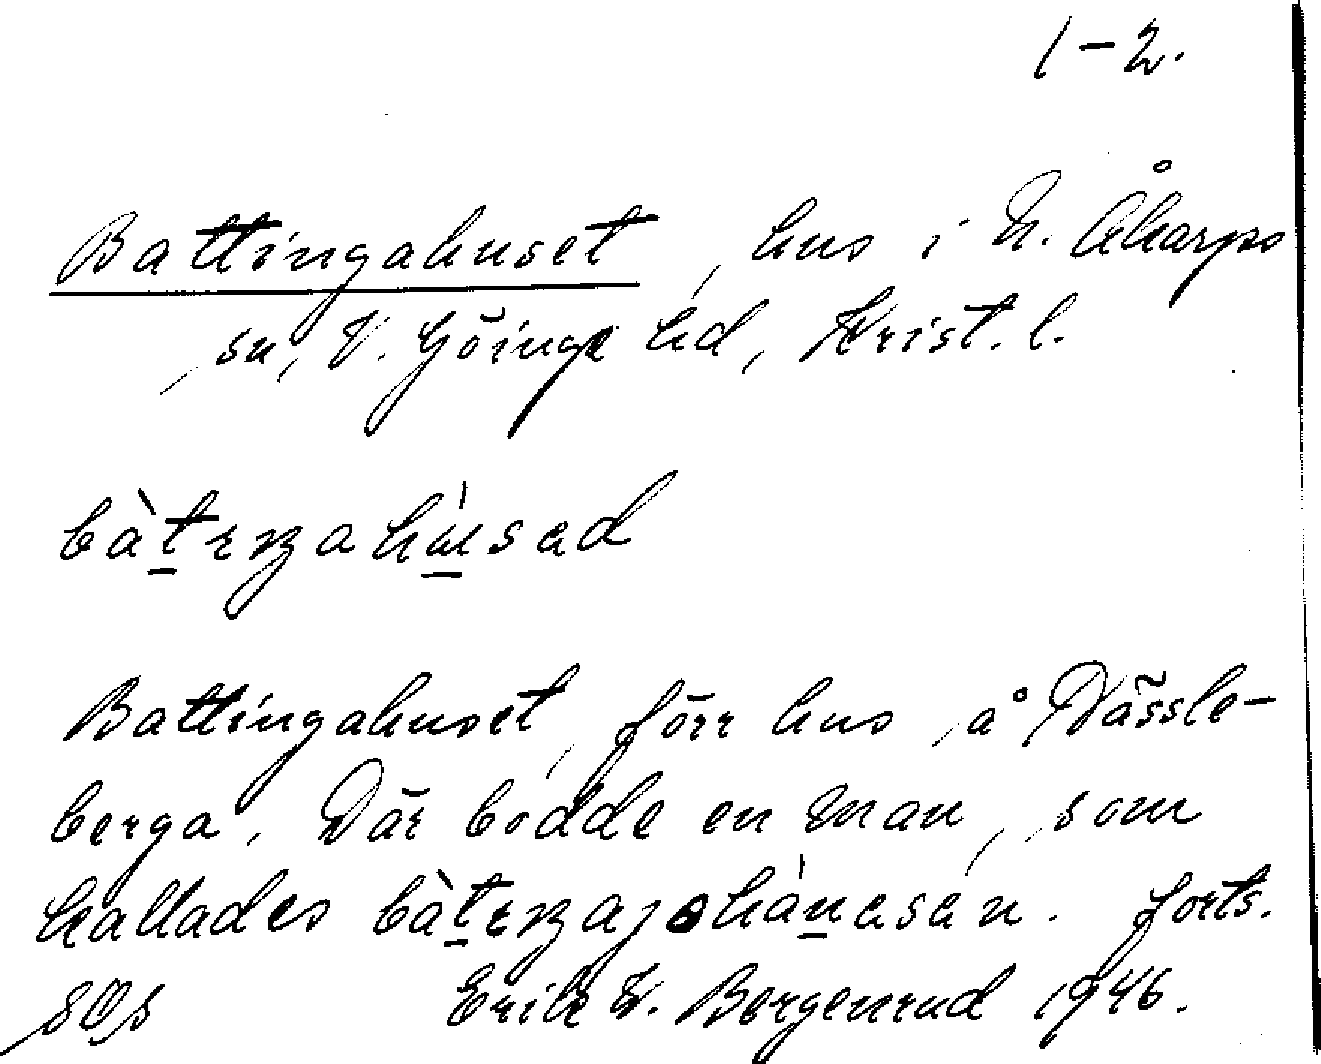 1-2.
Battingahuset, hus i N. Åkarps
sn, V. Göinge hd, Krist. l.
bàt̲ɛŋahu̲̍sad
Battingahuset, förr hus å Vässle-
berga. Där bodde en man, som
kallades bàt̲ɛŋajohàn̲asán. forts.
Erik W. Bergenrud 1946.